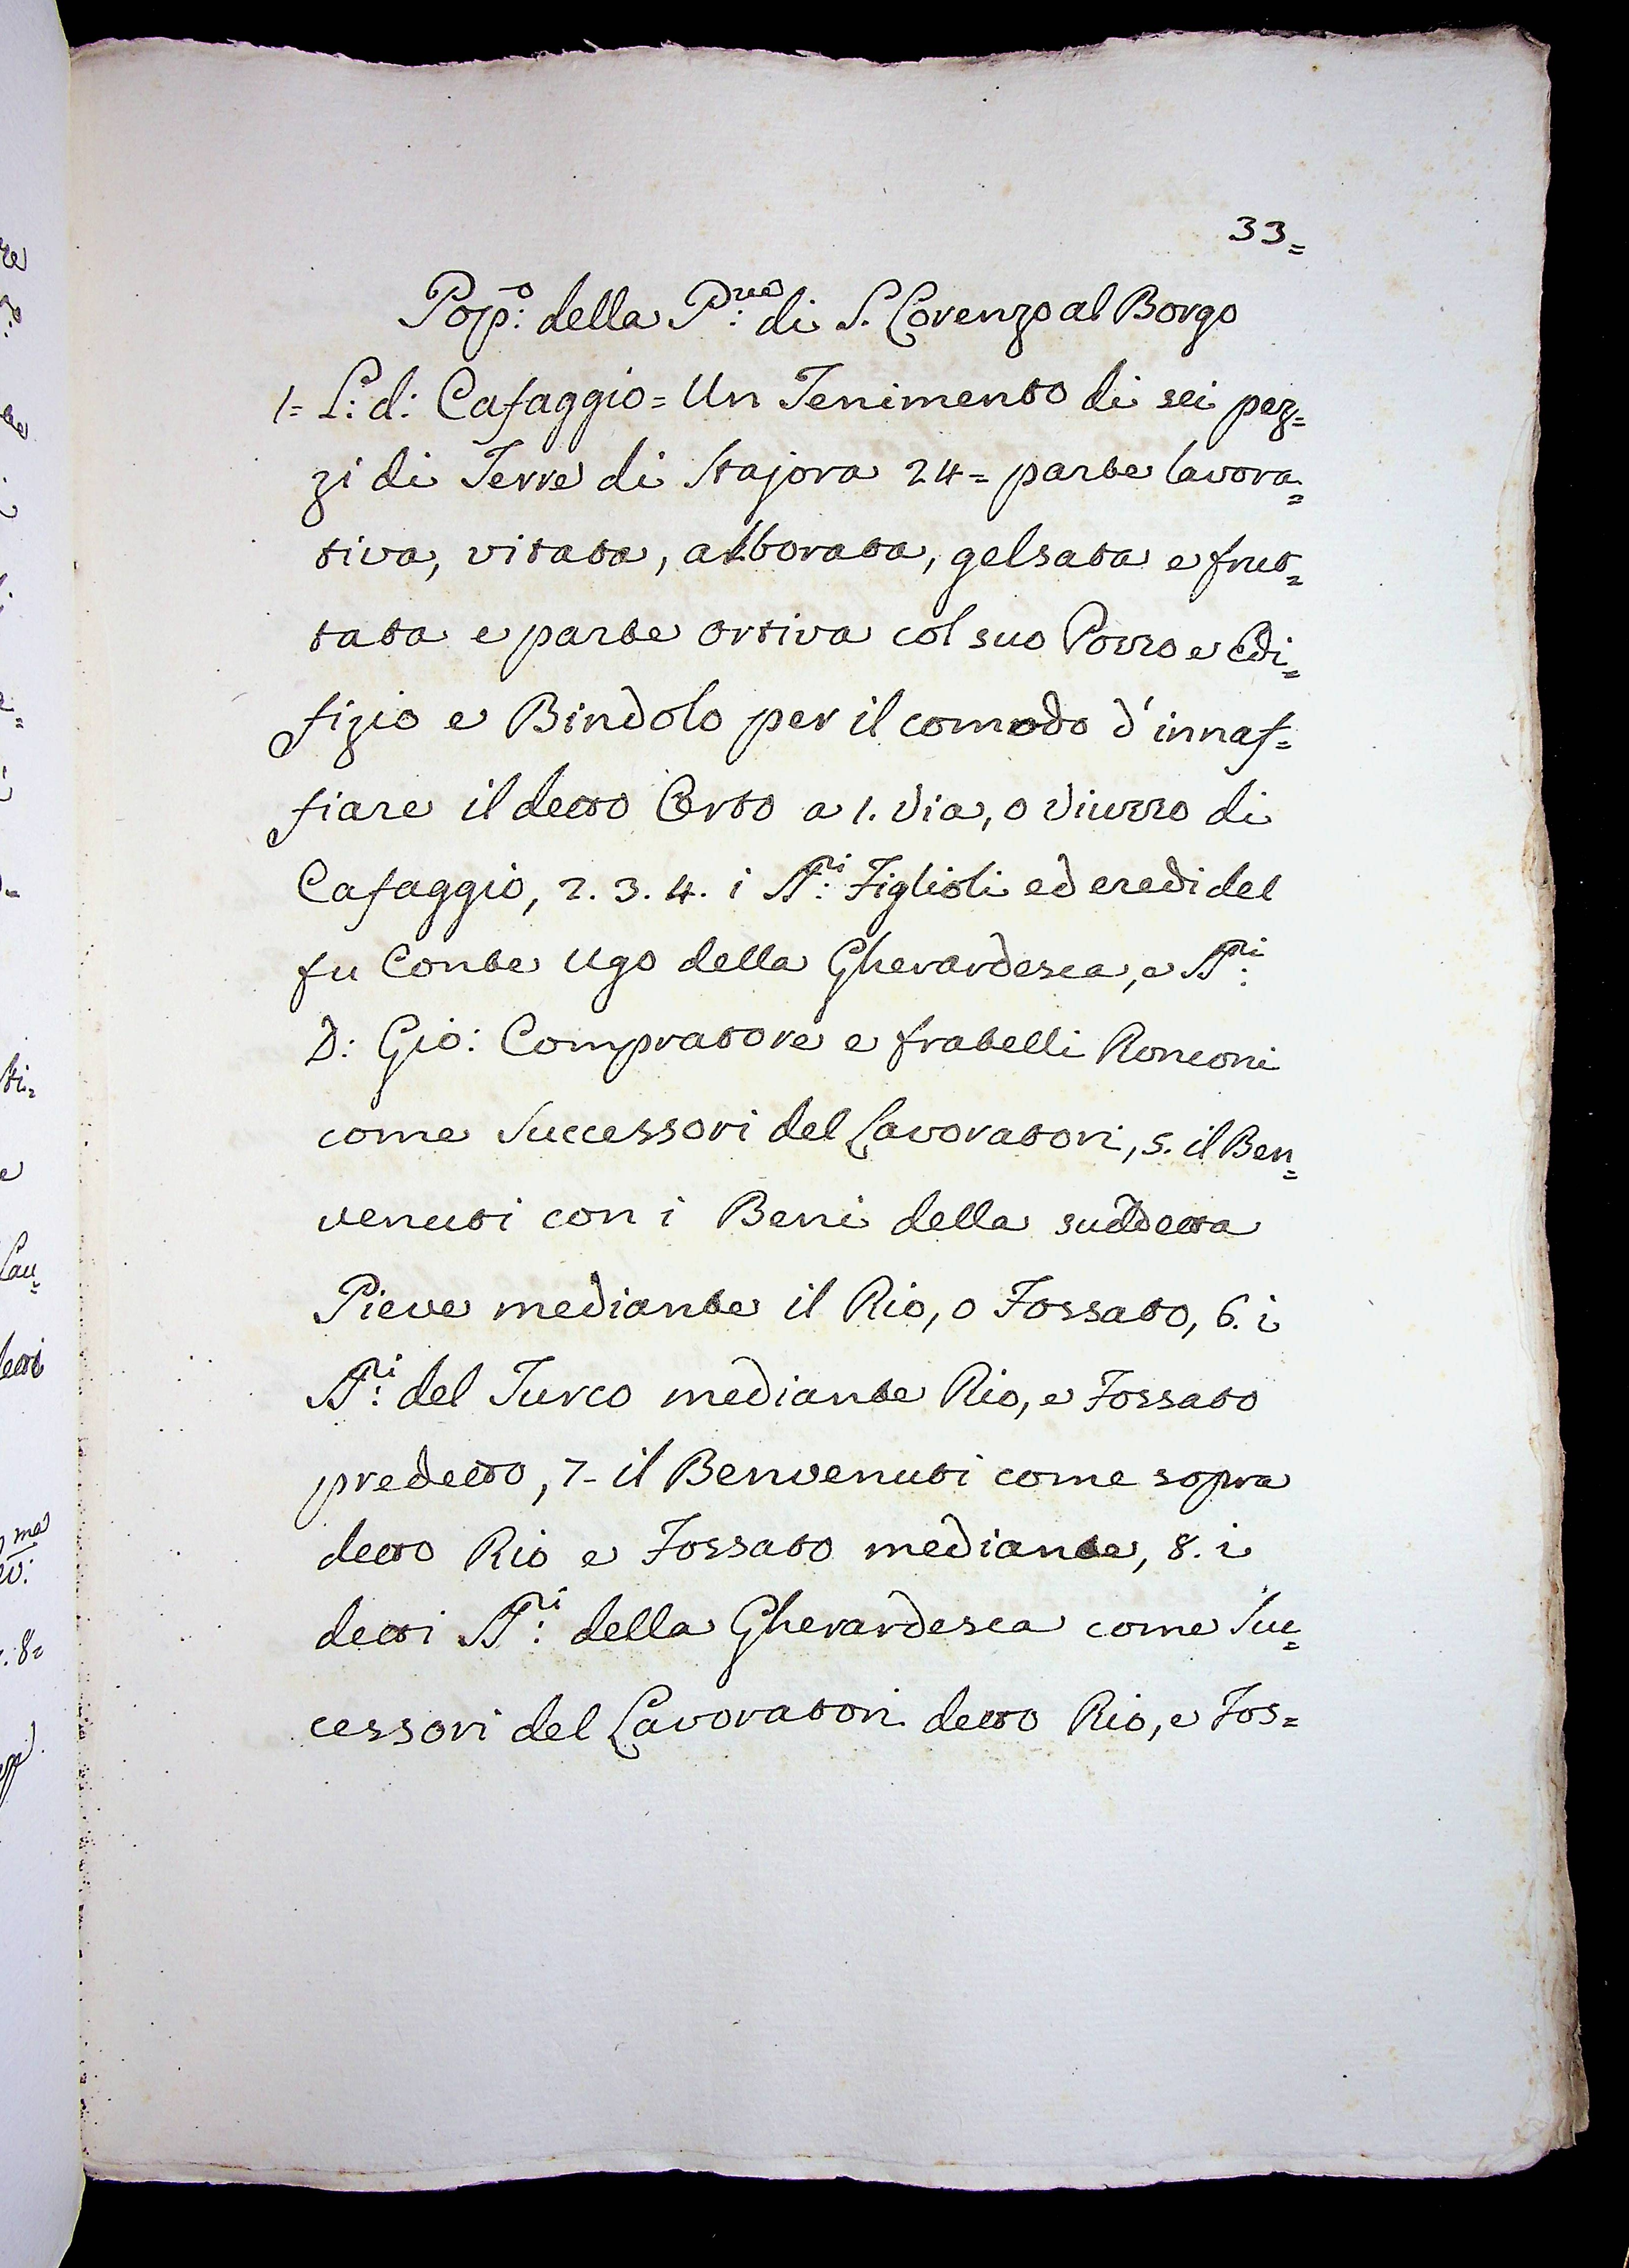 33=
Pop:o della P:ve di S. Lorenzo al Borgo
1= L: d: Cafaggio = Un Tenimento di sei pez=
zi di Terre di Stajora 24= parte lavora=
tiva, vitata, alborata, gelsata e frut=
tata e parte ortiva col suo Pozzo e Edi=
fizio e Bindolo per il comodo d'innaf=
fiare il detto Orto a 1. Via, o Viuzzo di
Cafaggio, 2. 3. 4. i SS:ri Figlioli ed eredi del
fu Conte Ugo della Gherardesca, e SS:ri
D: Gio: Compratore e fratelli Ronconi
come Successori del Lavoratori, 5. il Ben=
venuti con i Beni della suddetta
Pieve mediante il Rio, o Fossato, 6. i
SS:ri del Turco mediante Rio, e Fossato
predetto, 7- il Benvenuti come sopra
detto Rio e Fossato mediante, 8. i
detti SS:ri della Gherardesca come Suc=
cessori del Lavoratori detto Rio, e Fos=